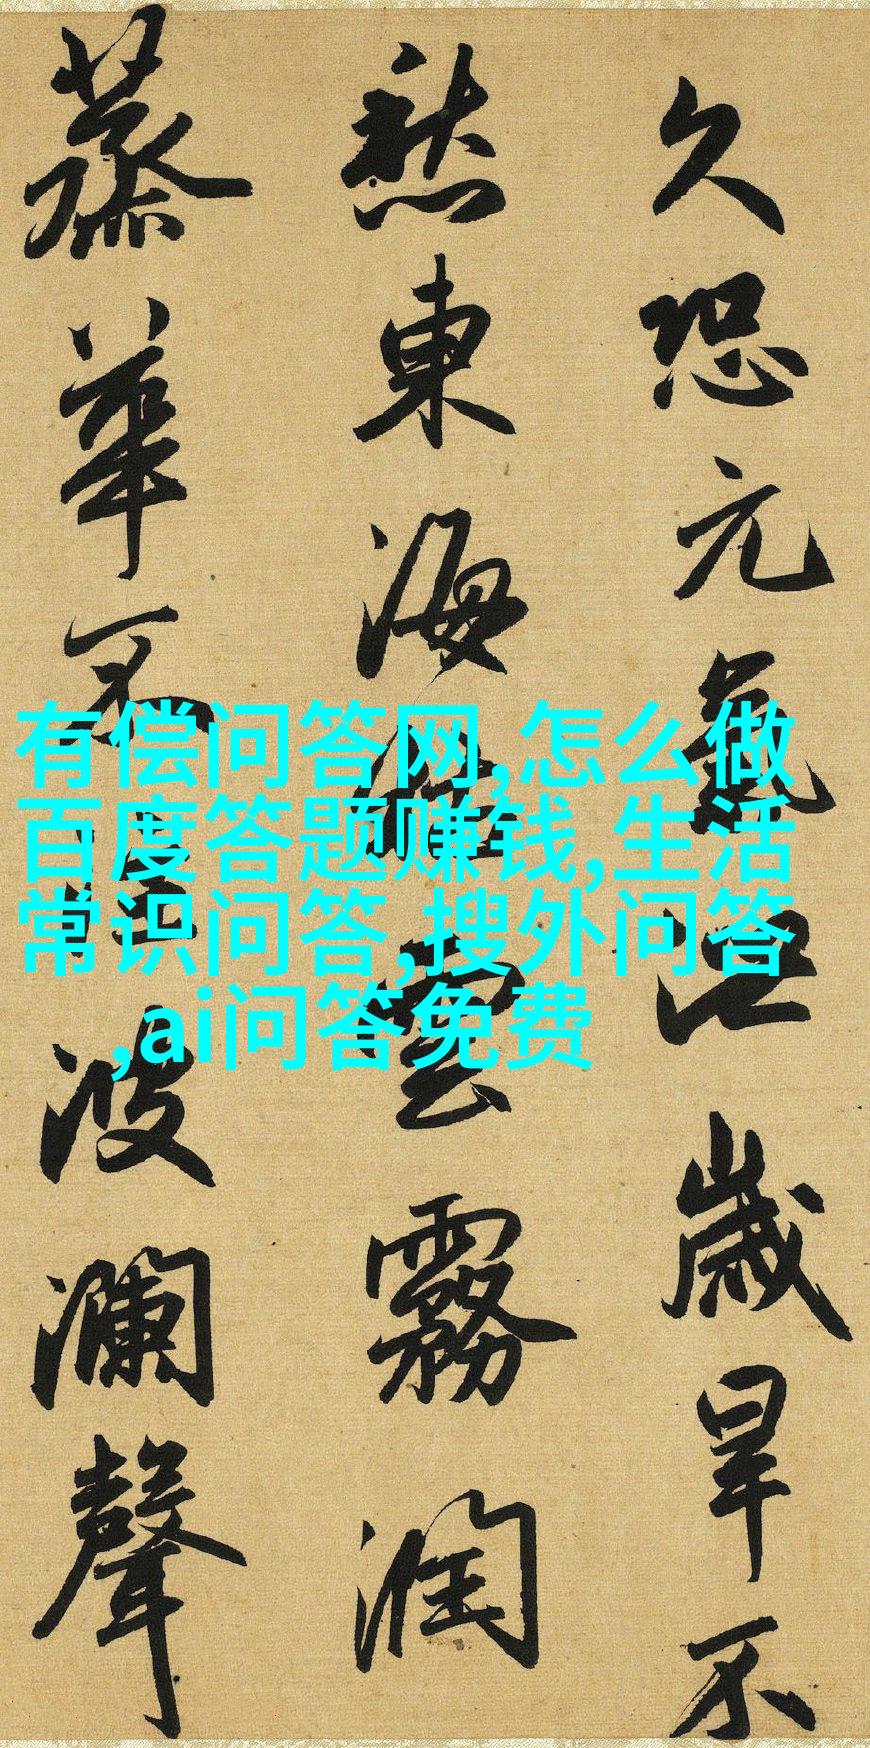 久恐元氣泄歲旱不
愁東海枯雲霧潤
蒸華不注波瀾聲
有偿问答网,怎么做
百度答题赚钱,生活
常识问答,搜外问答
,ai问答免费